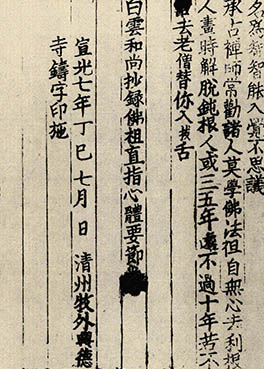 名為智智能入覺不思議
承古禪師常勸諸人莫學佛法但自無心去利根
人畫時解脫鈍根人或三五年遠不過十年若不
去老僧替你入拔舌
白雲和尚抄錄佛祖直指心體要節
宣光七年丁巳七月 日 清州牧外興德
寺鑄字印施